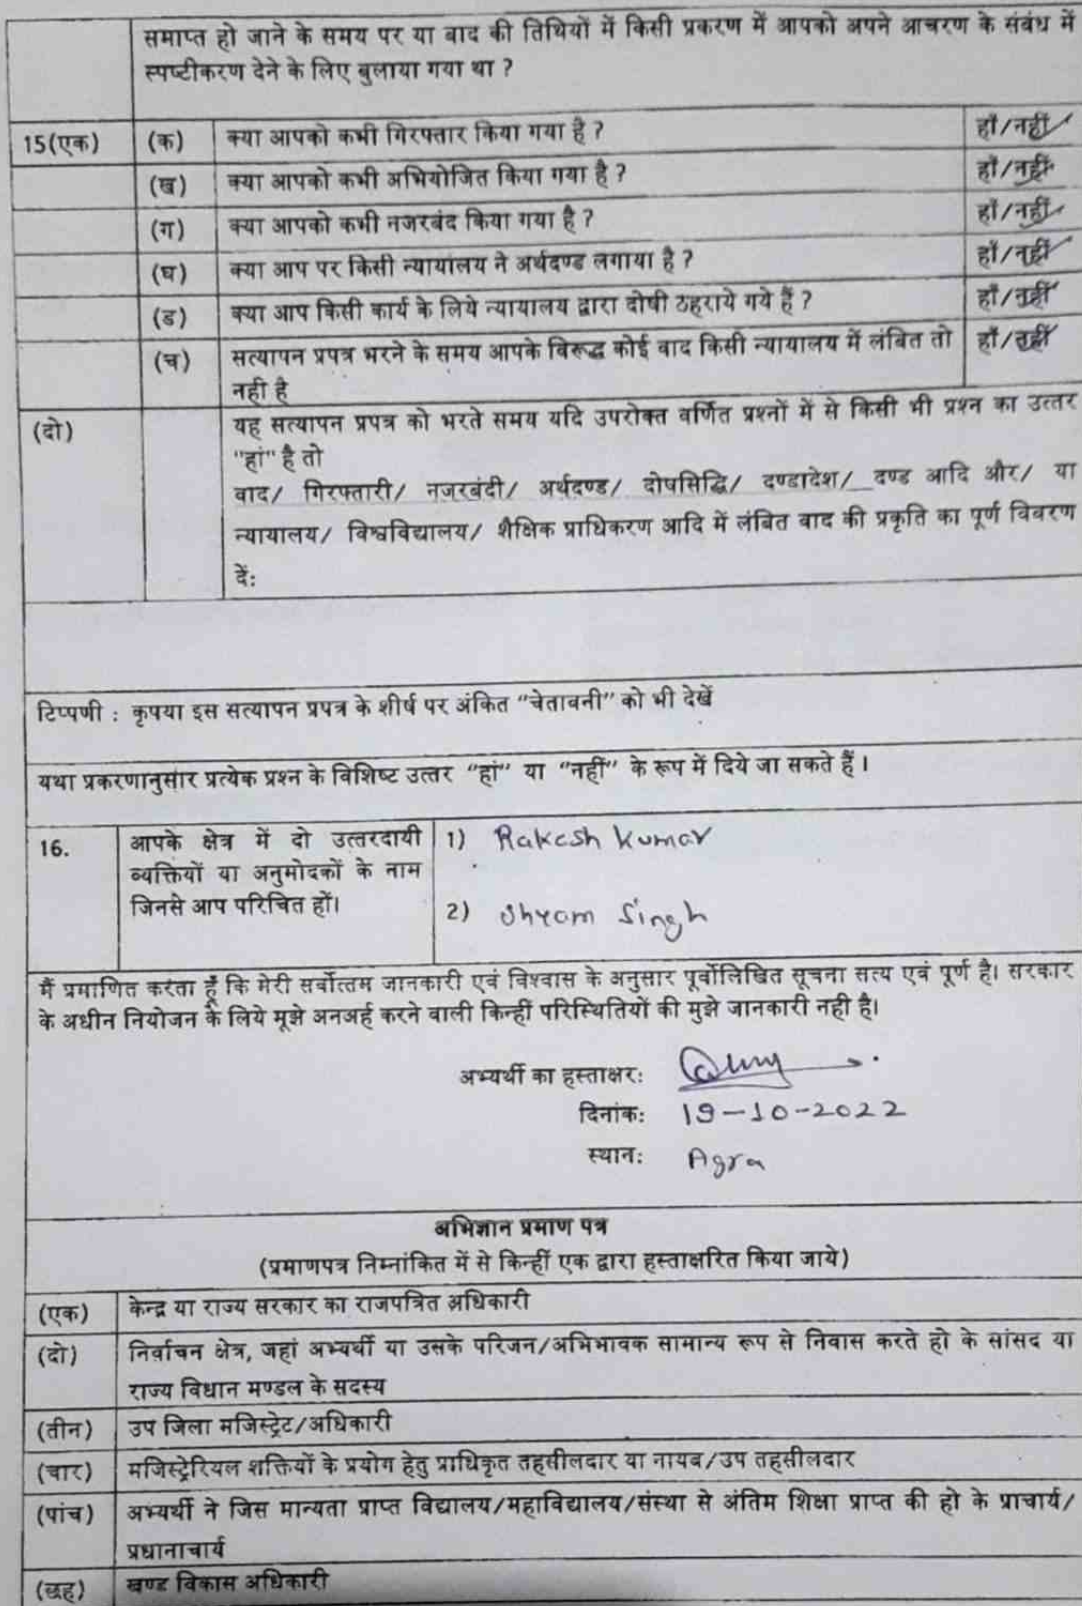 समाप्त हो जाने के समय पर या बाद की तिथियों में किसी प्रकरण में आपको अपने आचरण के संबंध में
स्पष्टीकरण देने के लिए बुलाया गया था ?
15(एक) (क) क्या आपको कभी गिरफ्तार किया गया है ? हाँ/नहीं
(ख) क्या आपको कभी अभियोजित किया गया है ? हाँ/नहीं
(ग) क्या आपको कभी नजरबंद किया गया है ? हाँ/नहीं
(घ) क्या आप पर किसी न्यायालय ने अर्थदण्ड लगाया है ? हाँ/नहीं
(ड) क्या आप किसी कार्य के लिये न्यायालय द्वारा दोषी ठहराये गये हैं ? हाँ/नहीं
(च) सत्यापन प्रपत्र भरने के समय आपके विरूद्ध कोई वाद किसी न्यायालय में लंबित तो हाँ/नहीं
नही है
(दो) यह सत्यापन प्रपत्र को भरते समय यदि उपरोक्त वर्णित प्रश्नों में से किसी भी प्रश्न का उत्तर
"हां" है तो
वाद/ गिरफ्तारी/ नजरबंदी/ अर्थदण्ड/ दोषसिद्धि/ दण्डादेश/ दण्ड आदि और/ या
न्यायालय/ विश्वविद्यालय/ शैक्षिक प्राधिकरण आदि में लंबित वाद की प्रकृति का पूर्ण विवरण
दें:
टिप्पणी : कृपया इस सत्यापन प्रपत्र के शीर्ष पर अंकित "चेतावनी" को भी देखें
यथा प्रकरणानुसार प्रत्येक प्रश्न के विशिष्ट उत्तर "हां" या "नहीं" के रूप में दिये जा सकते हैं।
16. आपके क्षेत्र में दो उत्तरदायी 1) Rakesh Kumar
व्यक्तियों या अनुमोदकों के नाम
जिनसे आप परिचित हों। 2) Shyam Singh
मैं प्रमाणित करता हूँ कि मेरी सर्वोत्तम जानकारी एवं विश्वास के अनुसार पूर्वोलिखित सूचना सत्य एवं पूर्ण है। सरकार
के अधीन नियोजन के लिये मूझे अनअर्ह करने वाली किन्हीं परिस्थितियों की मुझे जानकारी नही है।
अभ्यर्थी का हस्ताक्षर:
दिनांक: 19-10-2022
स्थान: Agra
अभिज्ञान प्रमाण पत्र
(प्रमाणपत्र निम्नांकित में से किन्हीं एक द्वारा हस्ताक्षरित किया जाये)
(एक) केन्द्र या राज्य सरकार का राजपत्रित अधिकारी
(दो) निर्वाचन क्षेत्र, जहां अभ्यर्थी या उसके परिजन/अभिभावक सामान्य रूप से निवास करते हो के सांसद या
राज्य विधान मण्डल के सदस्य
(तीन) उप जिला मजिस्ट्रेट/अधिकारी
(चार) मजिस्ट्रेरियल शक्तियों के प्रयोग हेतु प्राधिकृत तहसीलदार या नायब/उप तहसीलदार
(पांच) अभ्यर्थी ने जिस मान्यता प्राप्त विद्यालय/महाविद्यालय/संस्था से अंतिम शिक्षा प्राप्त की हो के प्राचार्य/
प्रधानाचार्य
(छह) खण्ड विकास अधिकारी